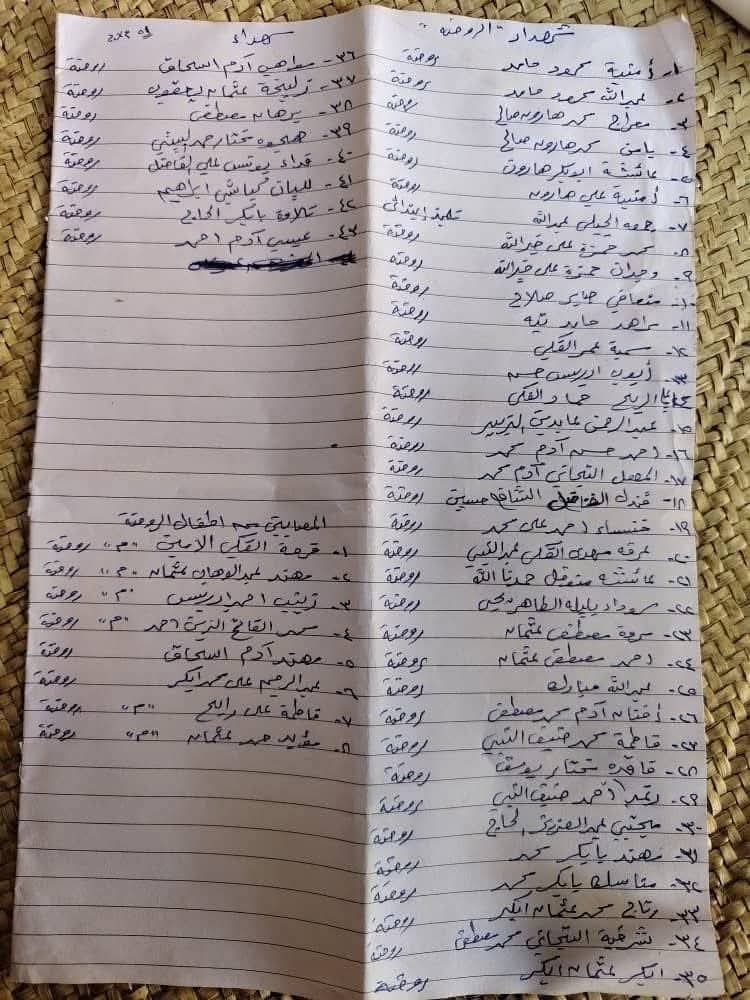 شهداء "الروضة"
١- أمنية محمود حامد روضة
٢- عبدالله محمود حامد روضة
٣- معراج محمد هارون صالح روضة
٤- يامن محمد هارون صالح روضة
٥- عائشة ابوبكر هارون روضة
٦- أمنية علي هارون روضة
٧- جمعه الجيلي عبدالله تلميذ إبتدائي
٨- محمد حمزة علي خيرالله روضة
٩- وجدان حمزة علي خيرالله روضة
١٠- متعافي صابر صلاح روضة
١١- زاهد حامد تيه روضة
١٢- سمية عمر الفكي روضة
١٣- أيوب ادريس حسن روضة
الربح حماد الفكي روضة
١٥- عبدالرحمن عابدين روضة
١٦- احمد حسن آدم محمد روضة
١٧- المعصل التجاني آدم محمد روضة
١٨- الشافع حسين روضة
١٩- خنساء احمد علي محمد روضة
٢٠- عرفه مهدي الفكي عبدالنبي روضة
٢١- عائشة متوكل حمدنا الله روضة
٢٢- سوداء بليله الطاهر يحي روضة
٢٣- مروة مصطفى عثمان روضة
٢٤- احمد مصطفى عثمان روضة
٢٥- عبدالله مبارك روضة
٢٦- أفنان آدم محمد مصطفى روضة
٢٧- فاطمة محمد ضيف النبي روضة
٢٨- مختار يوسف روضة
٢٩- رغد أحمد ضيف النبي روضة
٣٠- مجتبى عبدالعزيز الحاج روضة
٣١- مهند بابكر محمد روضة
٣٢- مناسك بابكر محمد روضة
٣٣- رتاج محمد عثمان ابكر روضة
٣٤- شرفية التجاني محمد مصطفى روضة
٣٥- ابكر عثمان ابكر روضة
شهداء
٣٦- مواهب آدم اسحاق روضة
٣٧- زليخة عثمان يعقوب روضة
٣٨- برهان مصطفى روضة
٣٩- مختار حمد روضة
٤٠- فداء يونس علي الفاضل روضة
٤١- لبيان كباشي ابراهيم روضة
٤٢- تلاوة بابكر الحاج روضة
٤٣- عيسى آدم احمد روضة
المصابين من اطفال الروضة
١- فرحة الفكي الامين "م" روضة
٢- مهند عبدالوهاب عثمان "م" روضة
٣- زينب احمد ادريس "م" روضة
٤- محمد الفاتح الزين احمد "م" روضة
٥- مهند آدم اسحاق روضة
٦- عبدالرحيم علي محمد ابكر روضة
٧- فاطمة علي رابح "م" روضة
٨- مؤيد حمد عثمان "م" روضة